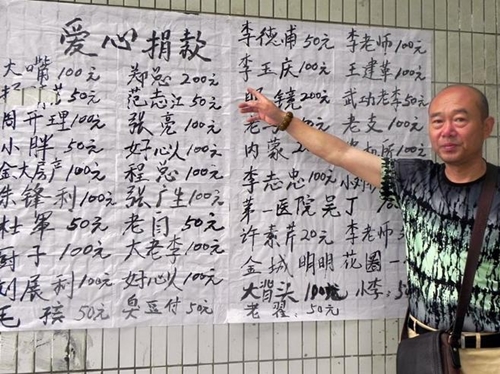 爱心捐款
大嘴100元 郑总200元
50元 范志江50元
周开理100元 张亮100元
小胖50元 好心人100元
金大房产100元 程总100元
朱锋利100元 张广生100元
杜军50元 老闫50元
厨子100元 大老李100元
刘展利100元 好心人100元
毛孩50元 臭豆付50元
李德甫50元 李老师100元
李玉庆100元 王建革100元
镜200元 武功老李50元
老 0元 老支100元
内蒙 100元
李志忠100元 小
第一医院吴丁
许素芹20元 李老师
金城明明 花圈一
大背江100元 小李:5
老翟:50元